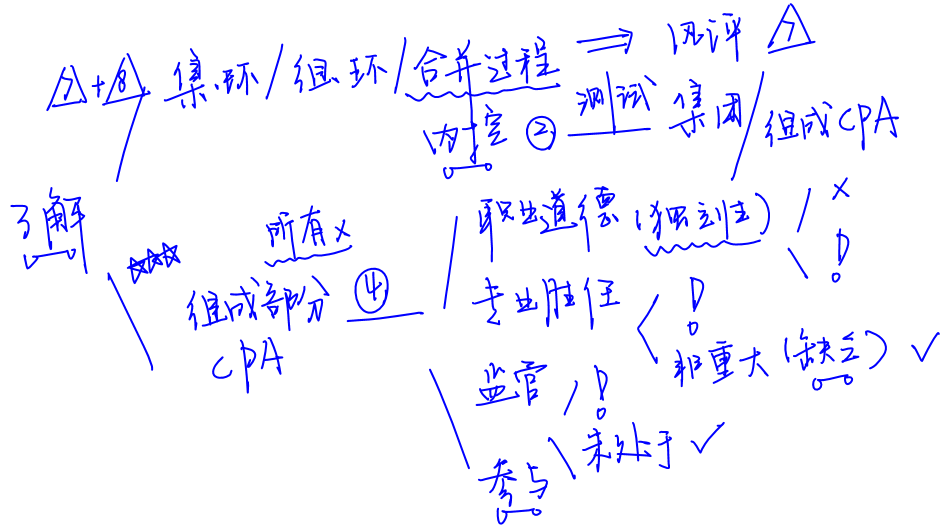 7+8 集.环/组.环/合并过程 ⇒ 风评 7
内控 ② 测试 集团/组成CPA
了解
☆☆☆ 所有x
组成部分 ④
CPA
职业道德(独立性) x
!
专业胜任 !
非重大(缺乏) ✓
监管 !
未处于 ✓
参与